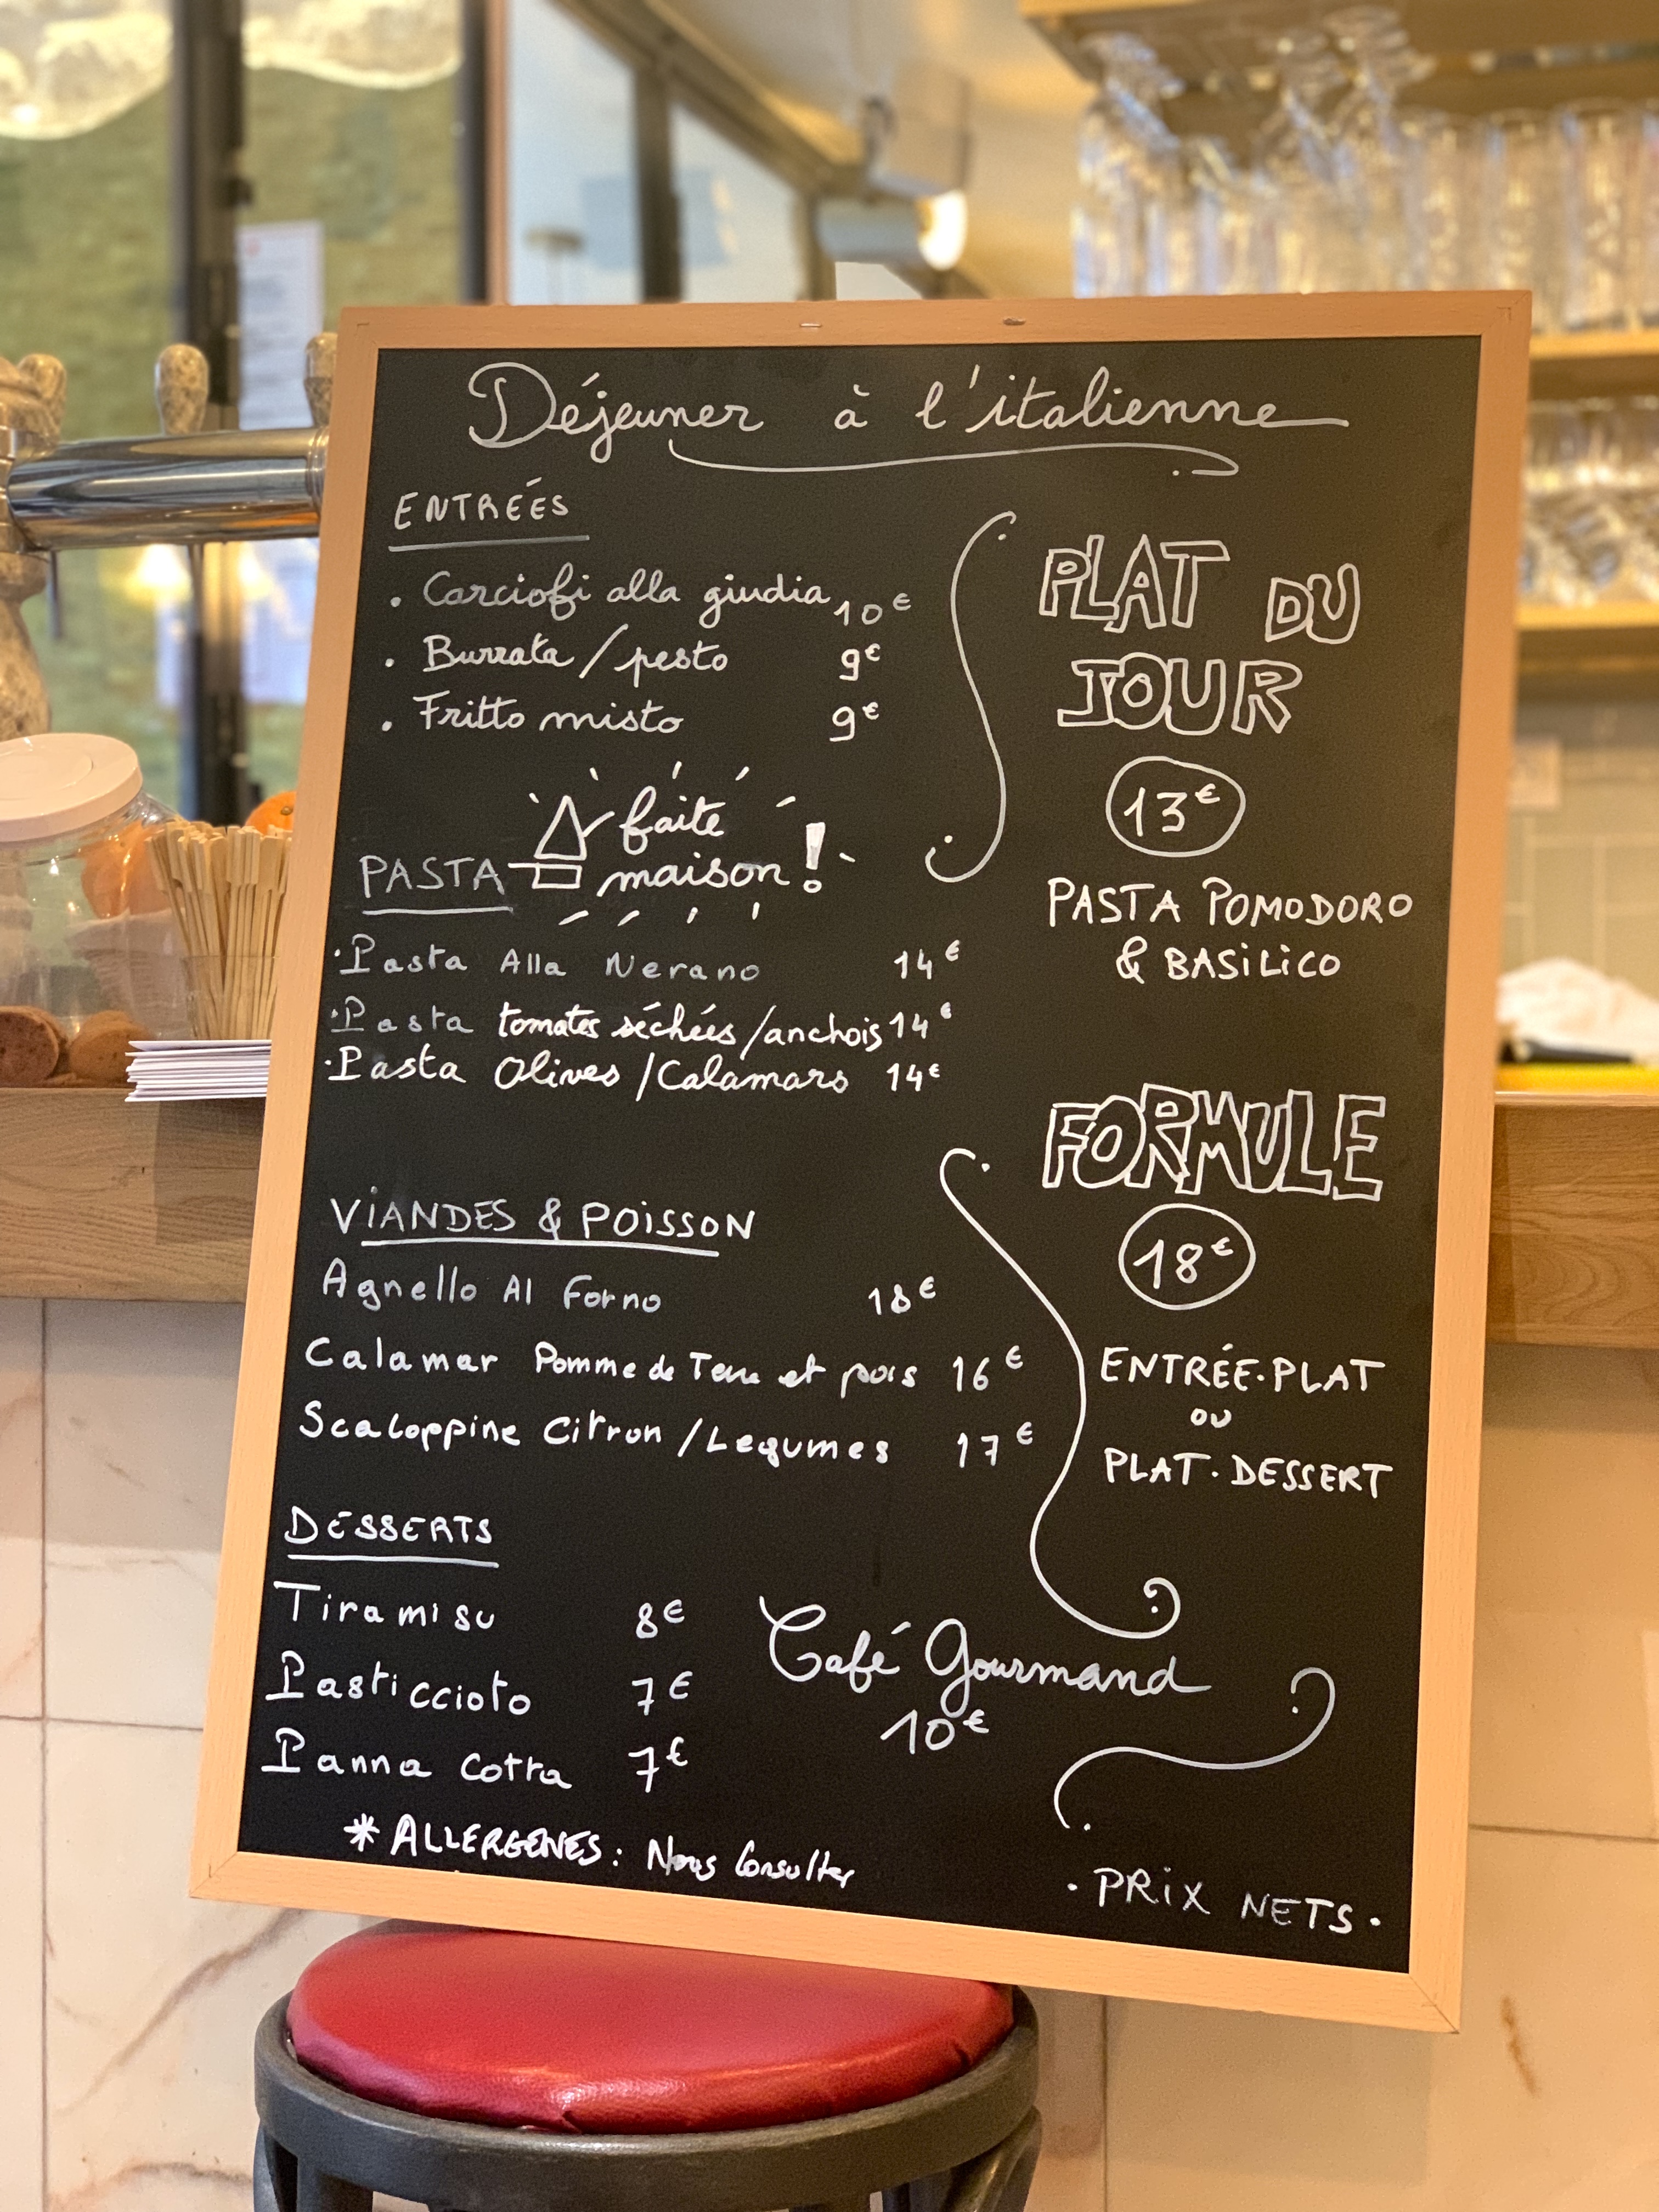 Déjeuner à l'italienne
ENTRÉÉS
. Carciofi alla giudia 10€
. Burrata/pesto 9€
. Fritto misto 9€
PASTA faite
maison!
·Pasta Alla Nerano 14€
·Pasta tomates séchées/anchois 14€
·Pasta Olives/Calamars 14€
VIANDES & POISSON
Agnello Al Forno 18€
Calamar Pomme de Terre et pois 16€
Scaloppine Citron/Legumes 17€
DESSERTS
Tiramisu 8€
Pasticcioto 7€
Panna cotta 7€
* ALLERGENES: Nous Consulter
PLAT DU
JOUR
13€
PASTA POMODORO
& BASILICO
FORMULE
18€
ENTRÉE.PLAT
OU
PLAT.DESSERT
Café Gourmand
10€
. PRIX NETS.